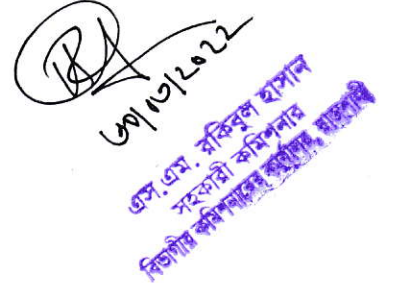 ৩০/০৩/২০২২
এস.এম. রকিবুল হাসান
সহকারী কমিশনার
বিভাগীয় কমিশনারের কার্যালয়, রাজশাহী